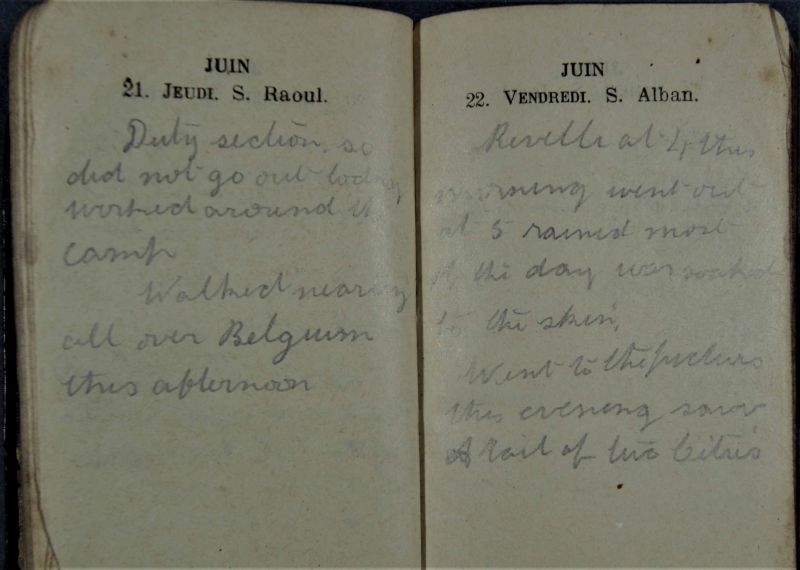 JUIN
21. JEUDI. S. Raoul.
Duty section. so
did not go out today
worked around th
camp
Walked nearly
all over Belguim
this afternoon
JUIN
22. VENDREDI. S. Alban.
Revelle at 4, this
morning went out
at 5 rained most
of the day was soaked
to the skin,
Went to the pictures
this evening saw
A Tail of two Cities